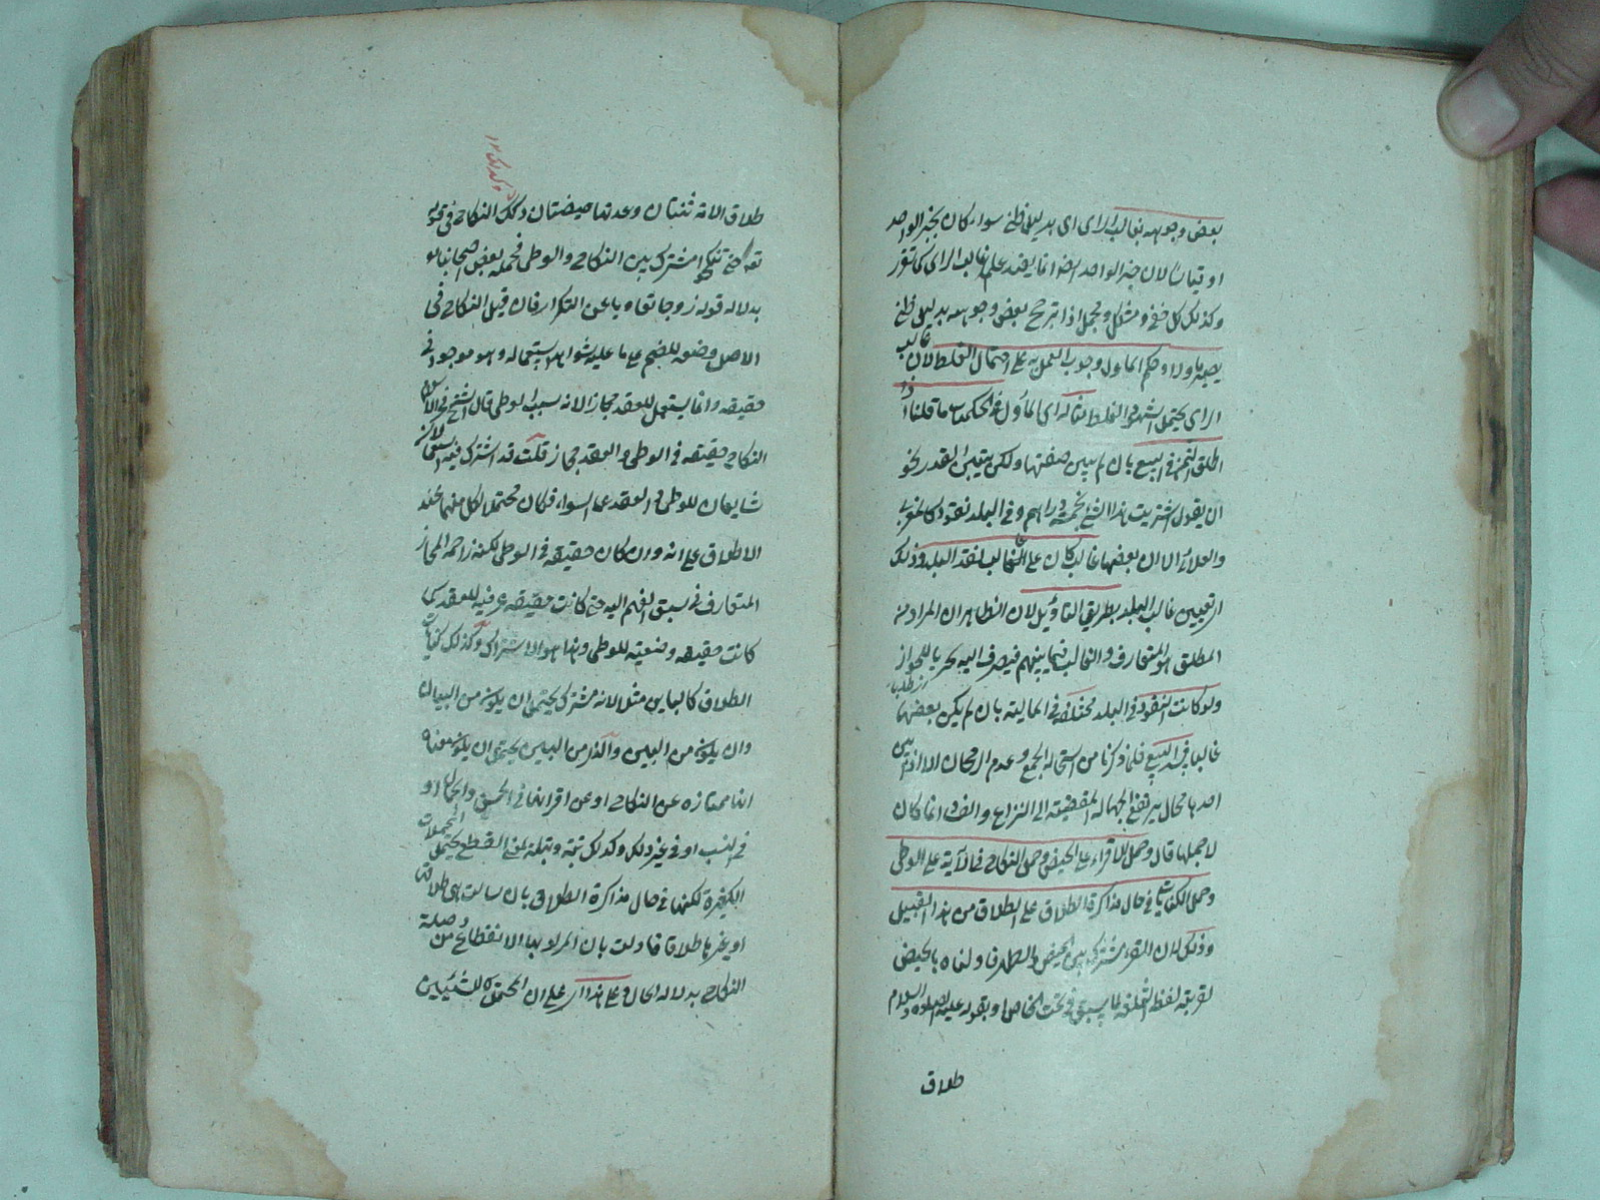 بعض وجوهه بغالب الراى اى بدليل ظنى سواء كان بخبر الواحد
او قياسا لان خبر الواحد ايضا انما يفيد علم غالب الراى كما تقرر
وكذلك كل خفى ومشكل ومجمل اذا ترجح بعض وجوهه بدليل ظنى
يصير ماولا وحكم الماول وجوب العمل به على احتمال الغلط لان غالب
الراى يحتمل السهو والغلط مثاله اى الماول فى الحكميات ما قلنا اذا
اطلق الثمن فى البيع بان لم يبين صفتها ولكن يبين القدر نحو
ان يقول اشتريت هذا الشئ بخمسة دراهم وفى البلد نقود
الا ان بعضها غالب كان على الغالب نقد البلد وذلك
اى تعيين غالب البلد بطريق التأويل لان الظاهر ان المراد من
المطلق هو المتعارف والغالب فيما بينهم فيصرف اليه تحريا للجواز
ولو كانت النقود فى البلد مختلفة فى المالية بان لم يكن بعضها
غالبا فسد البيع لما ذكرنا من استحالة الجمع وعدم الرجحان الا اذا بين
احدها حال يرتفع الجهالة المفضية الى النزاع والفساد انما كان
لاجلها قال وحمل الاقراء على الحيض وحمل النكاح فى الآية على الوطى
وحمل الكنايات فى حال مذاكرة الطلاق على الطلاق من هذا القبيل
وذلك لان القرء مشترك بين الحيض والطهر فاولناه بالحيض
لقرينة لفظ الثلثة لما سبق فى بحث الخاص او بقوله عليه الصلوة والسلام
طلاق
طلاق الامة ثنتان وعدتها حيضتان وكذلك النكاح فى قوله
تعالى حتى تنكح مشترك بين النكاح والوطى فحمله بعض اصحابنا
بدلالة قوله زوجا تفاديا عن التكرار فان قيل النكاح فى
الاصل وضعه للضم على ما عليه شواهد استعماله وهو موجود فى
حقيقة وانما يستعمل للعقد مجازا لانه سبب الوطى قال الشيخ
النكاح حقيقة فى الوطى والعقد مجاز قلت قد اشترك فيه استعمالا
شايعان للوطى والعقد على السواء فكان محتملا لكل منهما عند
الاطلاق على انه وان كان حقيقة فى الوطى لكنه زاحمه المجاز
المتعارف فى سبق الفهم اليه حتى كانت حقيقة عرفية للعقد كما
كانت حقيقة وضعية للوطى وهذا هو الاشتراك وكذلك كنايات
الطلاق كالباين مثلا لانه مشترك يحتمل ان يكون من البيان
وان يكون من البين واذا كان من البين يحتمل ان يكون معناه
انها ممتازة عن النكاح او عن اقرانها فى الحسن والجمال او
فى النسب او فى غير ذلك وكذلك بتة وبتلة لمعنى القطع يحتمل المحتملات
الكثيرة لكنها فى حال مذاكرة الطلاق بان سالت هى طلاقها
او غيرها طلاقها فاولت بان المراد بها الانقطاع من وصلة
النكاح بدلالة الحال وعلى هذا اى على ان المحتمل للشيئين